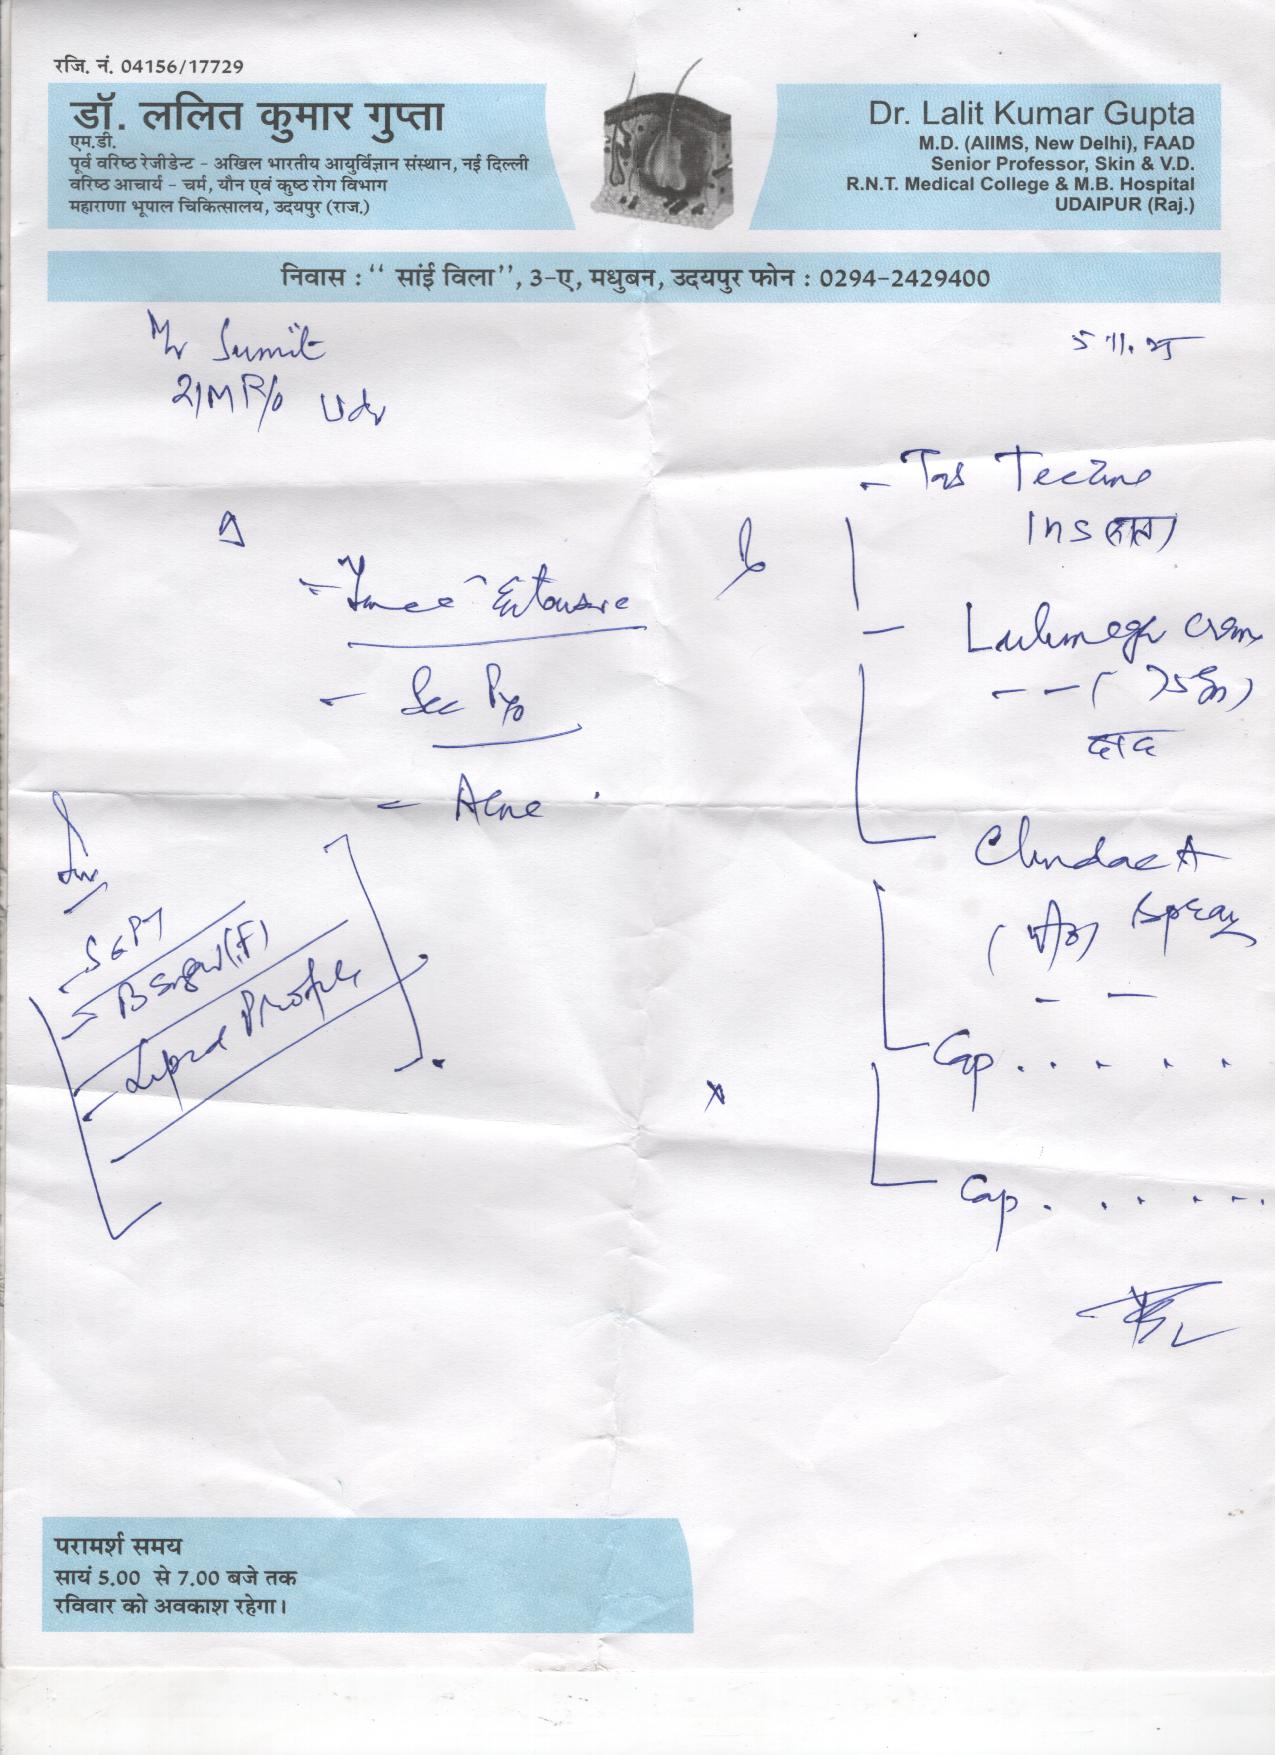 रजि. नं. 04156/17729
डॉ. ललित कुमार गुप्ता
एम.डी.
पूर्व वरिष्ठ रेजीडेन्ट - अखिल भारतीय आयुर्विज्ञान संस्थान, नई दिल्ली
वरिष्ठ आचार्य - चर्म, यौन एवं कुष्ठ रोग विभाग
महाराणा भूपाल चिकित्सालय, उदयपुर (राज.)
Dr. Lalit Kumar Gupta
M.D. (AIIMS, New Delhi), FAAD
Senior Professor, Skin & V.D.
R.N.T. Medical College & M.B. Hospital
UDAIPUR (Raj.)
निवास : “ सांई विला”, 3-ए, मधुबन, उदयपुर फोन : 0294-2429400
Mr Sumit
21M R/o Udr
- Extensive
- Sec
- Acne
SGPT
B Sugar (F)
Lipid Profile
- Tab
- cream
दाद
Clindac A
Spray
Cap . . . . .
Cap . . . . . .
परामर्श समय
सायं 5.00 से 7.00 बजे तक
रविवार को अवकाश रहेगा।